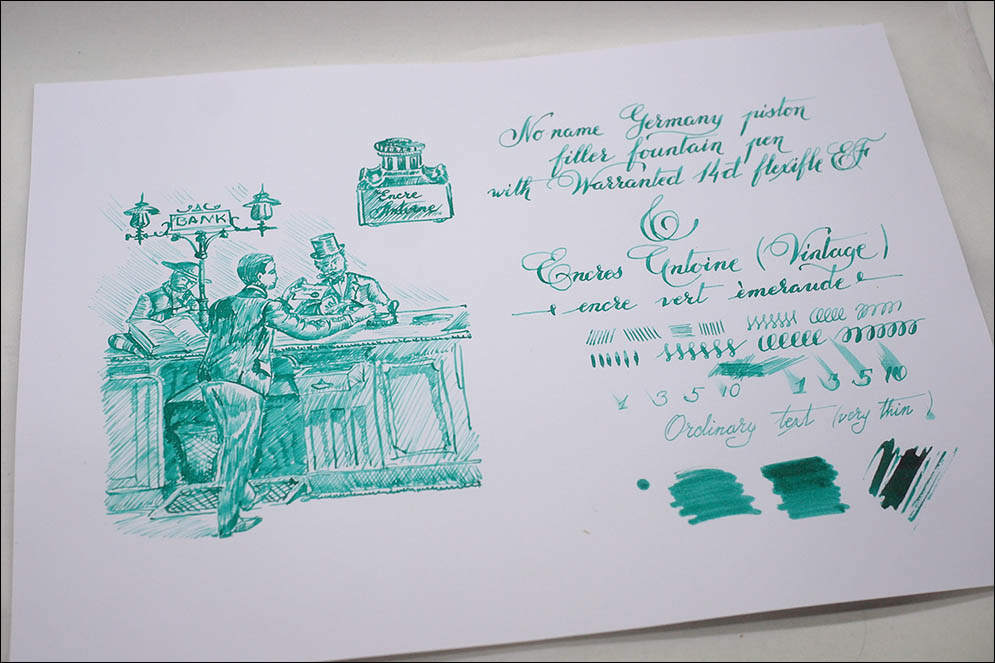 BANK
Encre
Antoine
No name Germany piston
filler fountain pen
with Warranted 14ct flexible EF
&
Encres Antoine (Vintage)
encre vert èmeraude
1 3 5 10 1 3 5 10
Ordinary text (very thin)